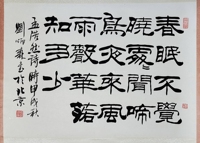 春眠不覺
曉處〻聞啼
鳥夜來風
雨聲華落
知多少
孟浩然詩時甲戌秋
劉炳森書於北京